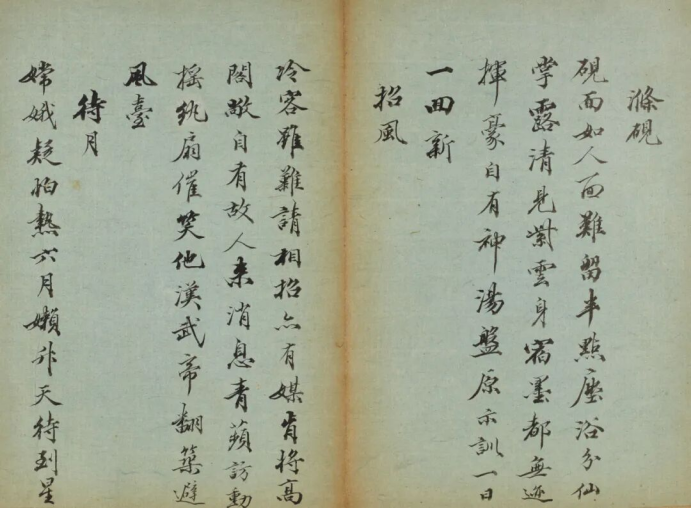 滌硯
硯面如人面難留半點塵浴分仙
掌露清見紫雲身宿墨都無迹
揮豪自有神湯盤原示訓一日
一回新
招風
冷客雖難請相招亦有媒肯將高
閣敞自有故人來消息青蘋訪動
搖紈扇催笑他漢武帝翻築避
風臺
待月
嫦娥疑怕熱六月嬾升天待到星